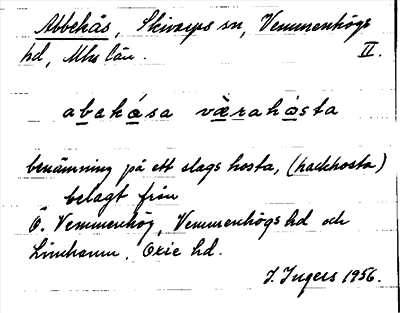 Abbekås, Skivarps sn, Vemmenhögs
hd, Mlhs län. II.
abekåsa värahåsta
benämning på ett slags hosta, (hackhosta)
belagt från
Ö. Vemmenhög, Vemmenhögs hd och
Limhamn, Oxie hd.
I. Ingers 1956.